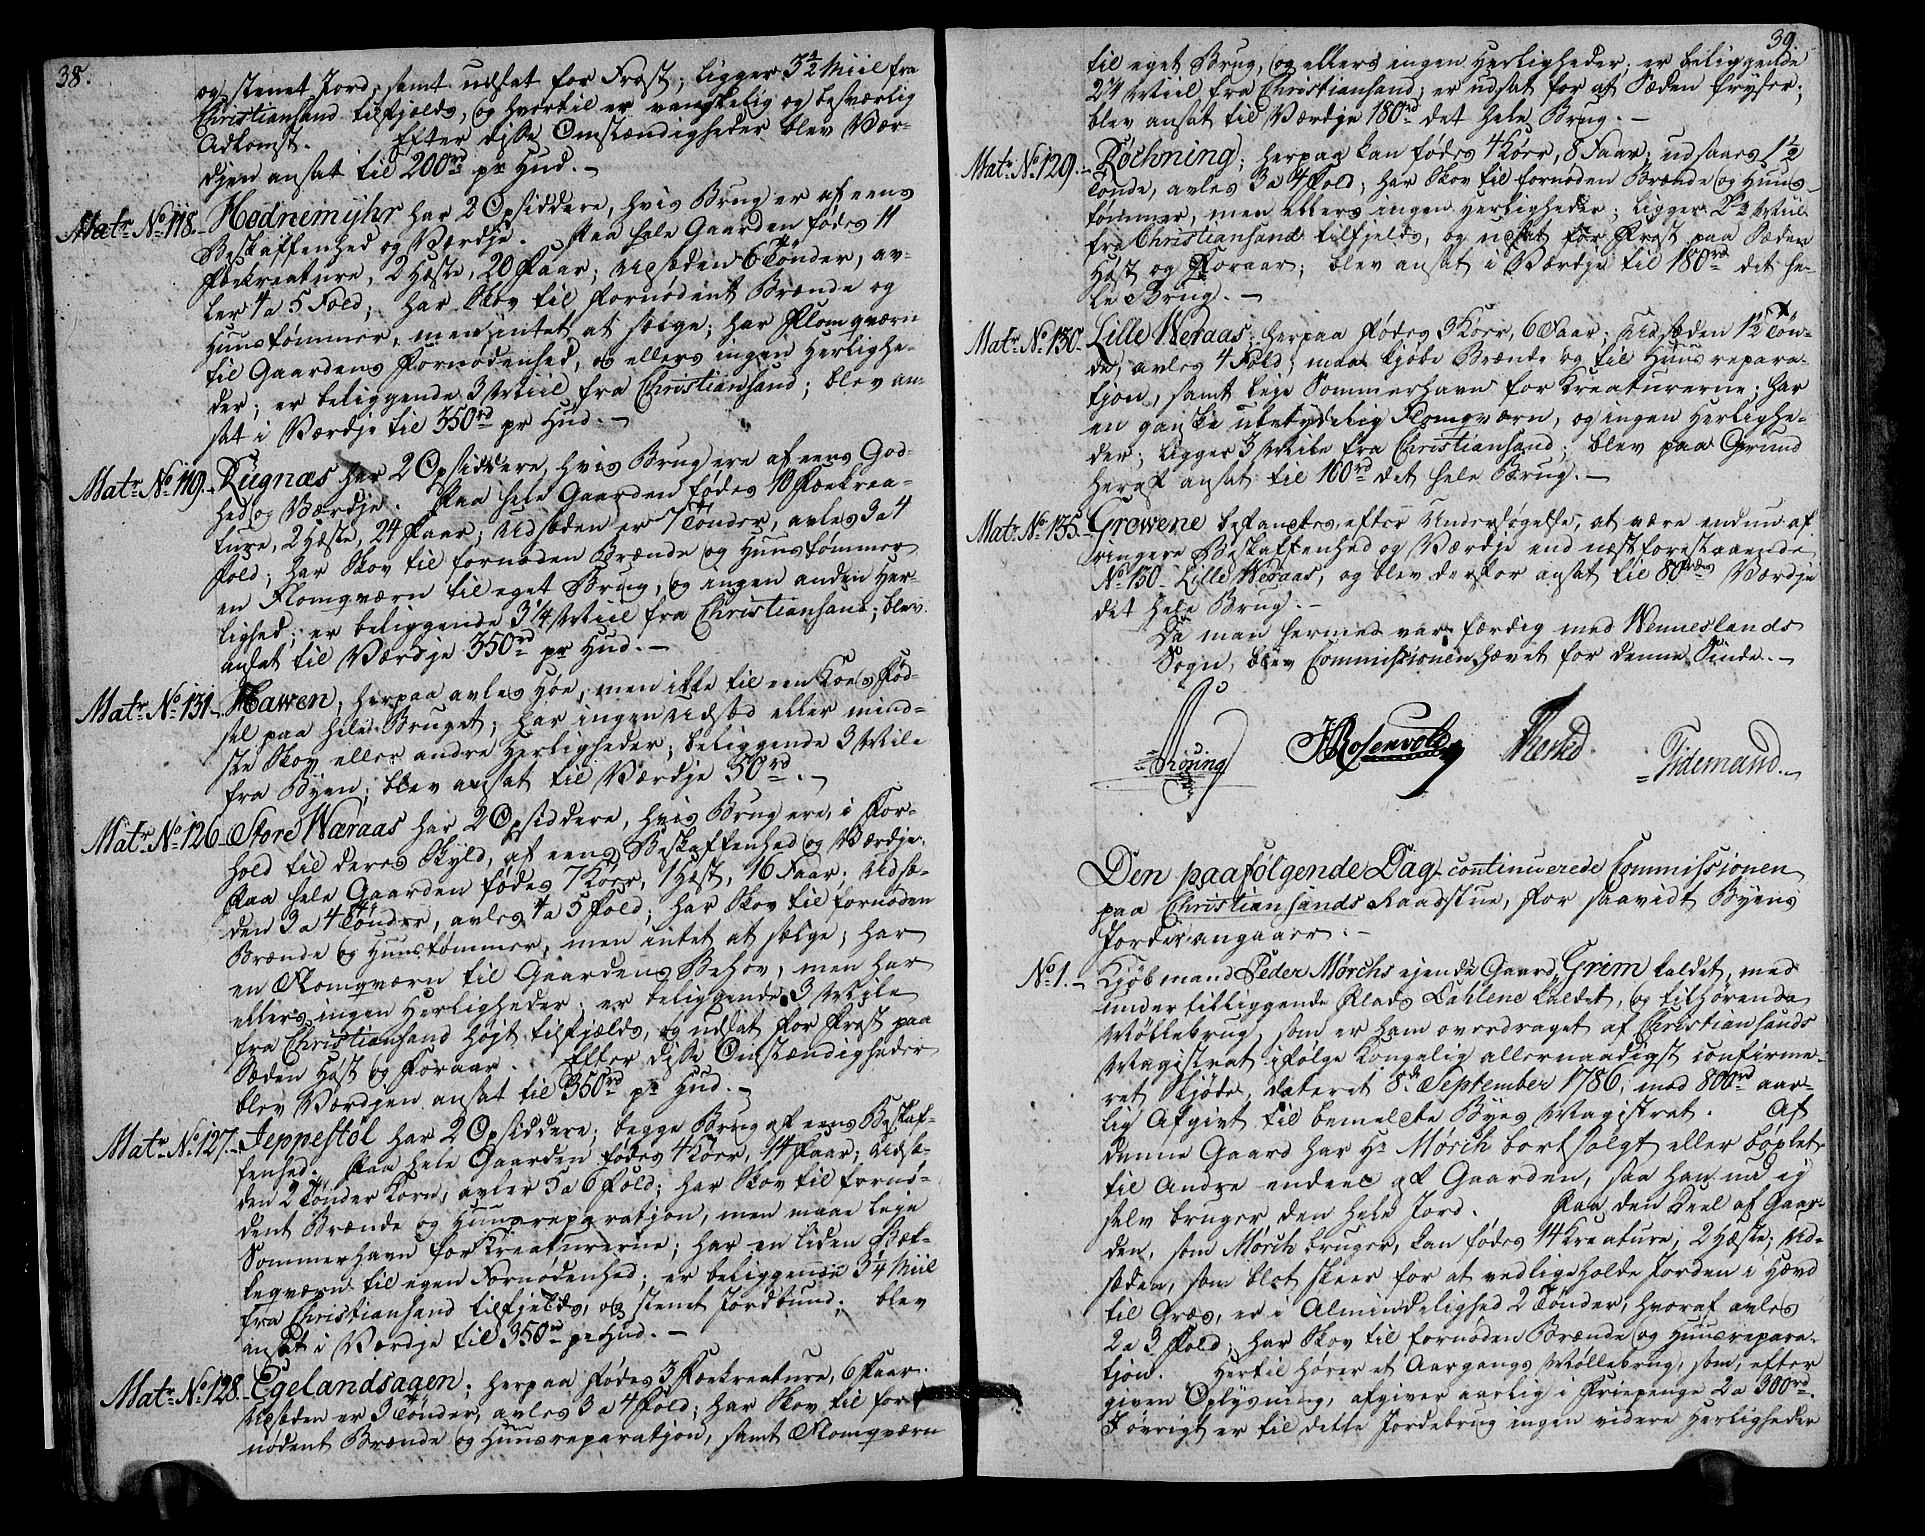 38.
og stenet Jord, samt udsat for Frost; ligger 3½ Miil fra
Christiansand tilfjelds, og hvortil er vanskelig og besværlig
Adkomst. Efter disse Omstændigheder blev Vær-
djen ansat til 200rd pr Hud. –
Matr. No. 118. Hodnemyhr har 2 Opsiddere, hvis Brug er af eens
Beskaffenhed og Værdje. Paa hele Gaarden fødes 11
Fækreature, 2 Hæste, 20 Faar; Udsæden 6 Tønder, av-
ler 4 a 5 Fold; har Skov til fornødent Brænde og
Huustømmer, men intet at sælge; har Flomqværn
til Gaardens Fornødenhed, og ellers ingen Herlighe-
der; er beliggende 3 Miil fra Christiansand; blev an-
sat i Værdje til 350rd pr Hud. –
Matr. No. 119. Rugnæs har 2 Opsiddere, hvis Brug ere af eens God-
hed og Værdje. Paa hele Gaarden fødes 10 Fækrea-
ture, 2 Hæste, 24 Faar; Udsæden er 7 Tønder, avles 3 a 4
Fold; har Skov til fornøden Brænde og Huustømmer
en Flomqværn til eget Brug, og ingen anden Her-
lighed; er beliggende 3¼ Miil fra Christiansand; blev
ansat til Værdje 350rd pr Hud. –
Matr. No. 131. Hawen, herpaa avles Høe, men ikke til een Koes Fød-
sel paa hele Bruget; har ingen Udsæd eller mind-
ste Skov eller andre Herligheder; beliggende 3 Mile
fra Byen; blev ansat til Værdje 50rd. –
Matr. No. 126. Store Wæraas har 2 Opsiddere, hvis Brug ere, i For-
hold til deres Skyld, af eens Beskaffenhed og Værdje.
Paa hele Gaarden fødes 7 Køer, 1 Hæst, 16 Faar; Udsæ-
den 3 a 4 Tønder, avles 4 a 5 Fold; har Skov til fornøden
Brænde og Huustømmer, men intet at sælge; har
en Flomqværn til Gaardens Behov, men har
ellers ingen Herligheder; er beliggende 3 Mile
fra Christiansand højt tilfjelds, og udsat for Frost paa
Sæden Høst og Foraar. Efter disse Omstændigheder
blev Værdjen ansat til 350rd pr Hud. –
Matr. No. 127. Jeppestøl har 2 Opsiddere; begge Brug af eens Beskaf-
fenhed. Paa hele Gaarden fødes 4 Køer, 14 Faar; Udsæ-
den 2 Tønder Korn, avler 5 a 6 Fold; har Skov til fornø-
dent Brænde og Huusreparatjon, men maae leje
Sommerhavn for Kreaturerne; har en liden Bæk-
keqværn til egen Fornødenhed; er beliggende 3¼ Miil
fra Christiansand tilfjelds, og stenet Jordbund; blev
ansat i Værdje til 350rd pr Hud. –
Matr. No. 128. Egelandsaaen; herpaa fødes 3 Fækreature, 6 Faar.
Udsæden er 3 Tønder, avles 3 a 4 Fold; har Skov til for-
nødent Brænde og Huusreparatjon, samt Flomqværn
39.
til eget Brug, og ellers ingen Herligheder; er beliggende
2¼ Miil fra Christiansand; er udsat for at Sæden fryser;
blev ansat til Værdje 180rd det hele Brug. –
Matr. No. 129. Røchning; herpaa kan fødes 4 Køer, 8 Faar, udsaaes 1½
Tønde, avles 3 a 4 Fold; har Skov til fornøden Brænde og Huus-
tømmer, men ellers ingen Herligheder; ligger 2½ Miil
fra Christiansand tilfjelds, og udsat for Frost paa Sæden
Høst og Foraar; blev ansat i Værdje til 180rd det he-
le Brug. –
Matr. No. 130. Lille Weraas; herpaa fødes 3 Køer, 6 Faar; Udsæden 1½ Tøn-
de, avles 4 Fold; maa kjøbe Brænde og til Huusrepara-
tjon, samt leje Sommerhavn for Kreaturerne; har
en ganske ubetydelig Flomqværn, og ingen Herlighe-
der; ligger 3 Mile fra Christiansand; blev paa Grund
heraf ansat til 160rd det hele Brug. –
Matr. No. 135. Growene befandtes, efter Undersøgelse, at være endnu af
ringere Beskaffenhed og Værdje end næstforestaaende
No. 130 Lille Weraas, og blev derfor ansat til 80rds Værdje
det hele Brug. –
Da man hermed var færdig med Wenneslands
Sogn, blev Commissionen hævet for denne Sinde. –
Røring JRosenvold Tidemand. –
Den paafølgende Dag continuerede Commissionen
paa Christiansands Raadstue, for saavidt Byens
Jorder angaaer. –
No. 1. – Kjøbmand Peder Mørchs ejende Gaard, Grim kaldet, med
undertilliggende Plads Dahlene kaldet, og tilhørende
Møllebrug, som er ham overdraget af Christiansands
Magistrat ifølge Kongelig allernaadigst confirme-
ret Skjøde, dateret 8de September 1786, mod 800rd aar-
lig Afgivt til bemeldte Byes Magistrat. Af
denne Gaard har Hr Mørch bortsolgt eller bøxlet
til Andre endeel af Gaarden, saa han nu ej
selv bruger den hele Jord. Paa den Deel af Gaar-
den, som Mørch bruger, kan fødes 14 Kreature, 2 Hæste; Ud-
sæden, som blot skeer for at vedligeholde Jorden i Hævd
til Græs, er i Almindelighed 2 Tønder, hvoraf avles
2 a 3 Fold; har Skov til fornøden Brænde og Huusrepara-
tjon. Hertil hører et Aargangs Møllebrug, som, efter
given Oplysning, afgiver aarlig i Friepenge 2 a 300rd.
I øvrigt er til dette Jordebrug ingen videre Herligheder